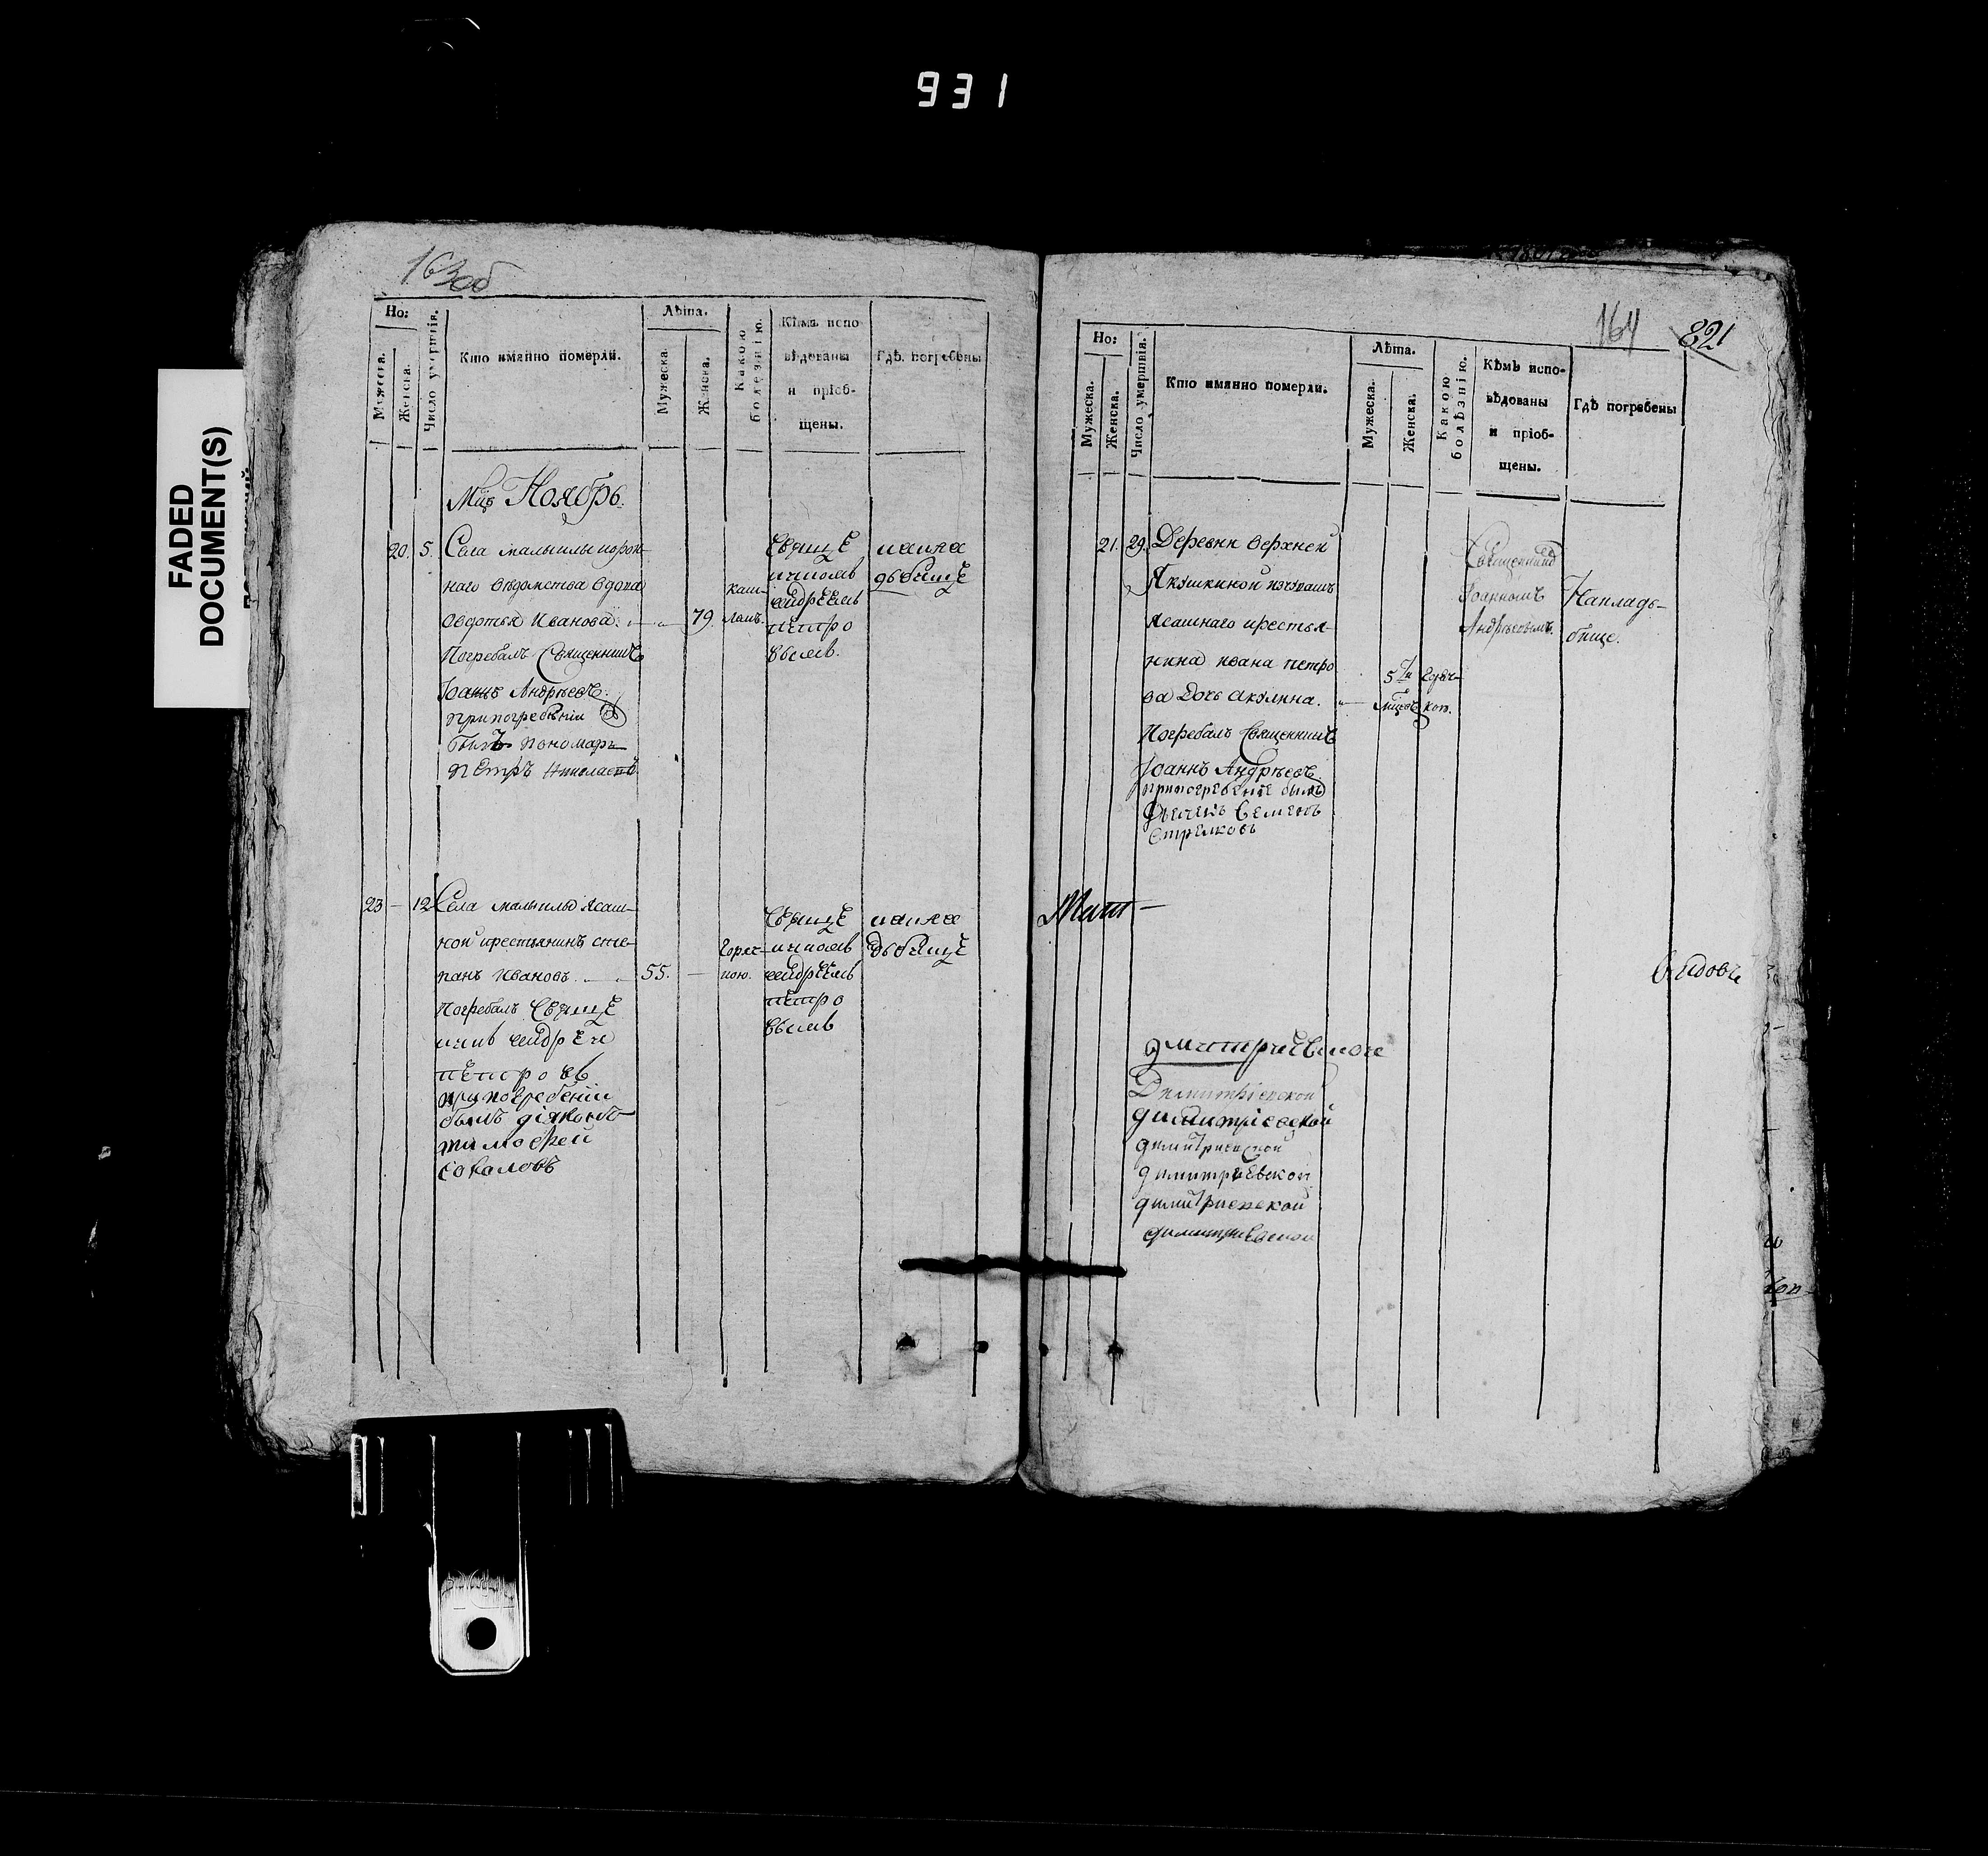 931
FADED
DOCUMENT(S)
163об
Но:
Мужеска.
Женска.
Число умертвія.
Кто имянно померли.
Лѣта.
Мужеска.
Женска.
Какою болѣзнію.
Кѣмъ испо-
вѣдованы
и пріоб-
щены.
Гдѣ погребены
Мцъ Ноябрь.
20. 5. Села малыилы корон-
наго вѣдомства вдова
Авдотья Иванова. 79. каш-
лемъ.
Погребалъ Священникъ
Іоаннъ Андрѣевъ.
при погребеніи
былъ пономарь
петръ Николаевъ
Свяще
нникомъ
андреемъ
петро
вымъ.
накла
дбище
23 - 12 Села малыилы Ясаш-
ной крестьянинъ сте-
панъ Ивановъ. 55. - горяч-
кою.
Погребалъ Свяще
нникъ андреи
петровъ
при погребеніи
былъ діаконъ
тимофеи
соколовъ
Свяще
нникомъ
андреемъ
петро
вымъ
накла
дбище
164 821
Но:
Мужеска.
Женска.
Число умертвія.
Кто имянно померли.
Лѣта.
Мужеска.
Женска.
Какою болѣзнію.
Кѣмъ испо-
вѣдованы
и пріоб-
щены.
Гдѣ погребены
21. 29. Деревни верхней
Якушкиной
Ясашнаго крестья-
нина ивана петро
ва дочь акулина. 5ти мцовъ горяч-
кой.
Погребалъ Священникъ
Іоаннъ Андрѣевъ.
при погребеніе былъ
Дьячекъ Семенъ
Стрелковъ
Священник
Іоанномъ
Андрѣевымъ.
Накладь-
бище.
Димитріевской
димитріевской
димитриевской
димитриевской
димитриевской
димитриевской